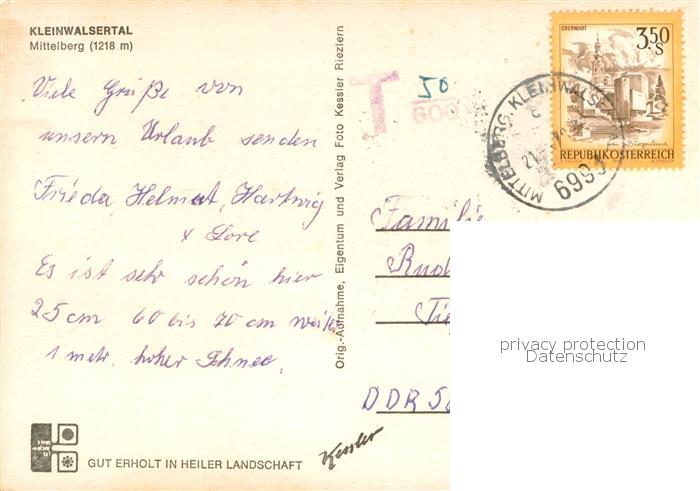 KLEINWALSERTAL
Mittelberg (1218 m)
Viele Grüße von
unsern Urlaub senden
Frieda, Helmut, Hartwig
+ Lore
Es ist sehr schön hier
25 cm 60 bis 70 cm
1 metr. hoher Schnee.
GUT ERHOLT IN HEILER LANDSCHAFT
Kessler
Orig.-Aufnahme, Eigentum und Verlag Foto Kessler Riezlern
T
50
600
OBERWART
3.50
S
Burgenland
REPUBLIK ÖSTERREICH
MITTELBERG, KLEINWALSE
21.
6993
Familie
Rud
DDR 58
privacy protection
Datenschutz